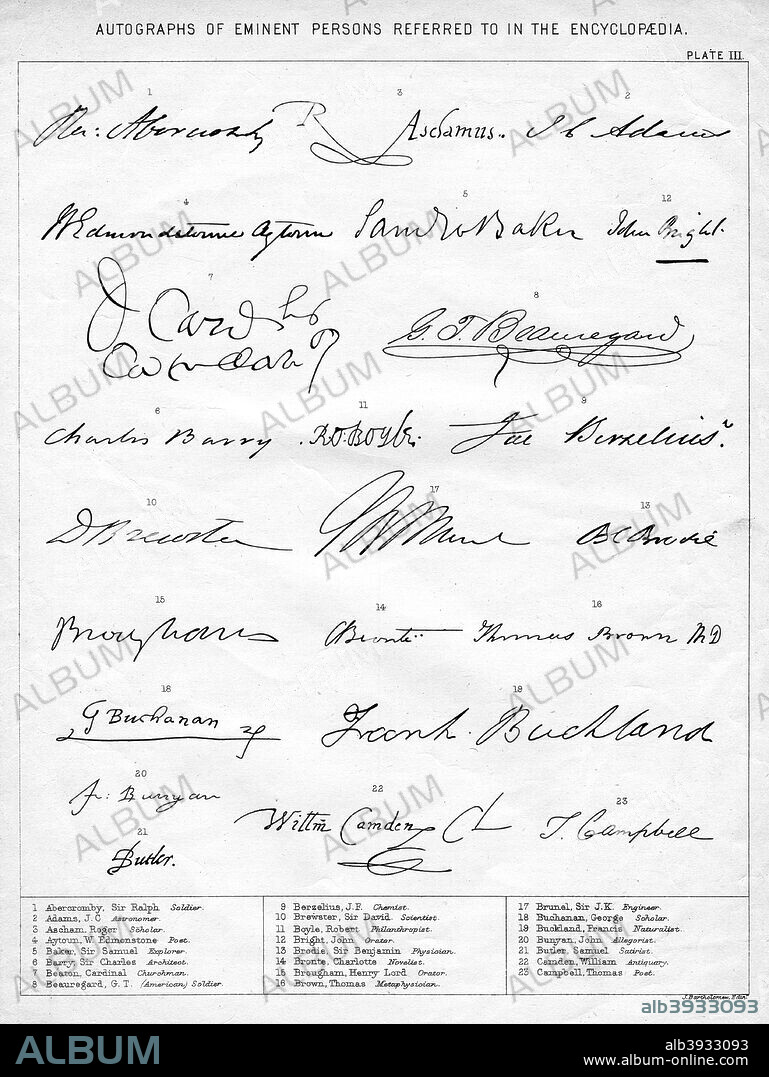 AUTOGRAPHS OF EMINENT PERSONS REFERRED TO IN THE ENCYCLOPÆDIA.
PLATE III.
1 3 2
Aschamus. Adams
4 5 12
WEdmondstoune Aytoun Baker John Bright.
7 8
G. T. Beauregard
6 11 9
Charles Barry RO: BOYLE. Berzelius
10 17 13
D Brewster BCBrodie
15 14 16
Brougham CBrontë Thomas Brown MD
18 19
G Buchanan Frank Buckland
20 22 23
Jo: Bunyan Camden T. Campbell
21
Butler.
1 Abercromby, Sir Ralph Soldier.
2 Adams, J.C. Astronomer.
3 Ascham, Roger Scholar.
4 Aytoun, W. Edmonstone Poet.
5 Baker, Sir Samuel Explorer.
6 Barry, Sir Charles Architect.
7 Beaton, Cardinal Churchman.
8 Beauregard, G. T. (American) Soldier.
9 Berzelius, J.F. Chemist.
10 Brewster, Sir David Scientist.
11 Boyle, Robert Philanthropist.
12 Bright, John Orator.
13 Brodie, Sir Benjamin Physician.
14 Bronte, Charlotte Novelist.
15 Brougham, Henry Lord Orator.
16 Brown, Thomas Metaphysician.
17 Brunel, Sir J.K. Engineer.
18 Buchanan, George Scholar.
19 Buckland, Francis Naturalist.
20 Bunyan, John Allegorist.
21 Butler, Samuel Satirist.
22 Camden, William Antiquary.
23 Campbell, Thomas Poet.
J. Bartholomew, Edinr.
alb3933093
ALBUM
alb3933093
www.album-online.com